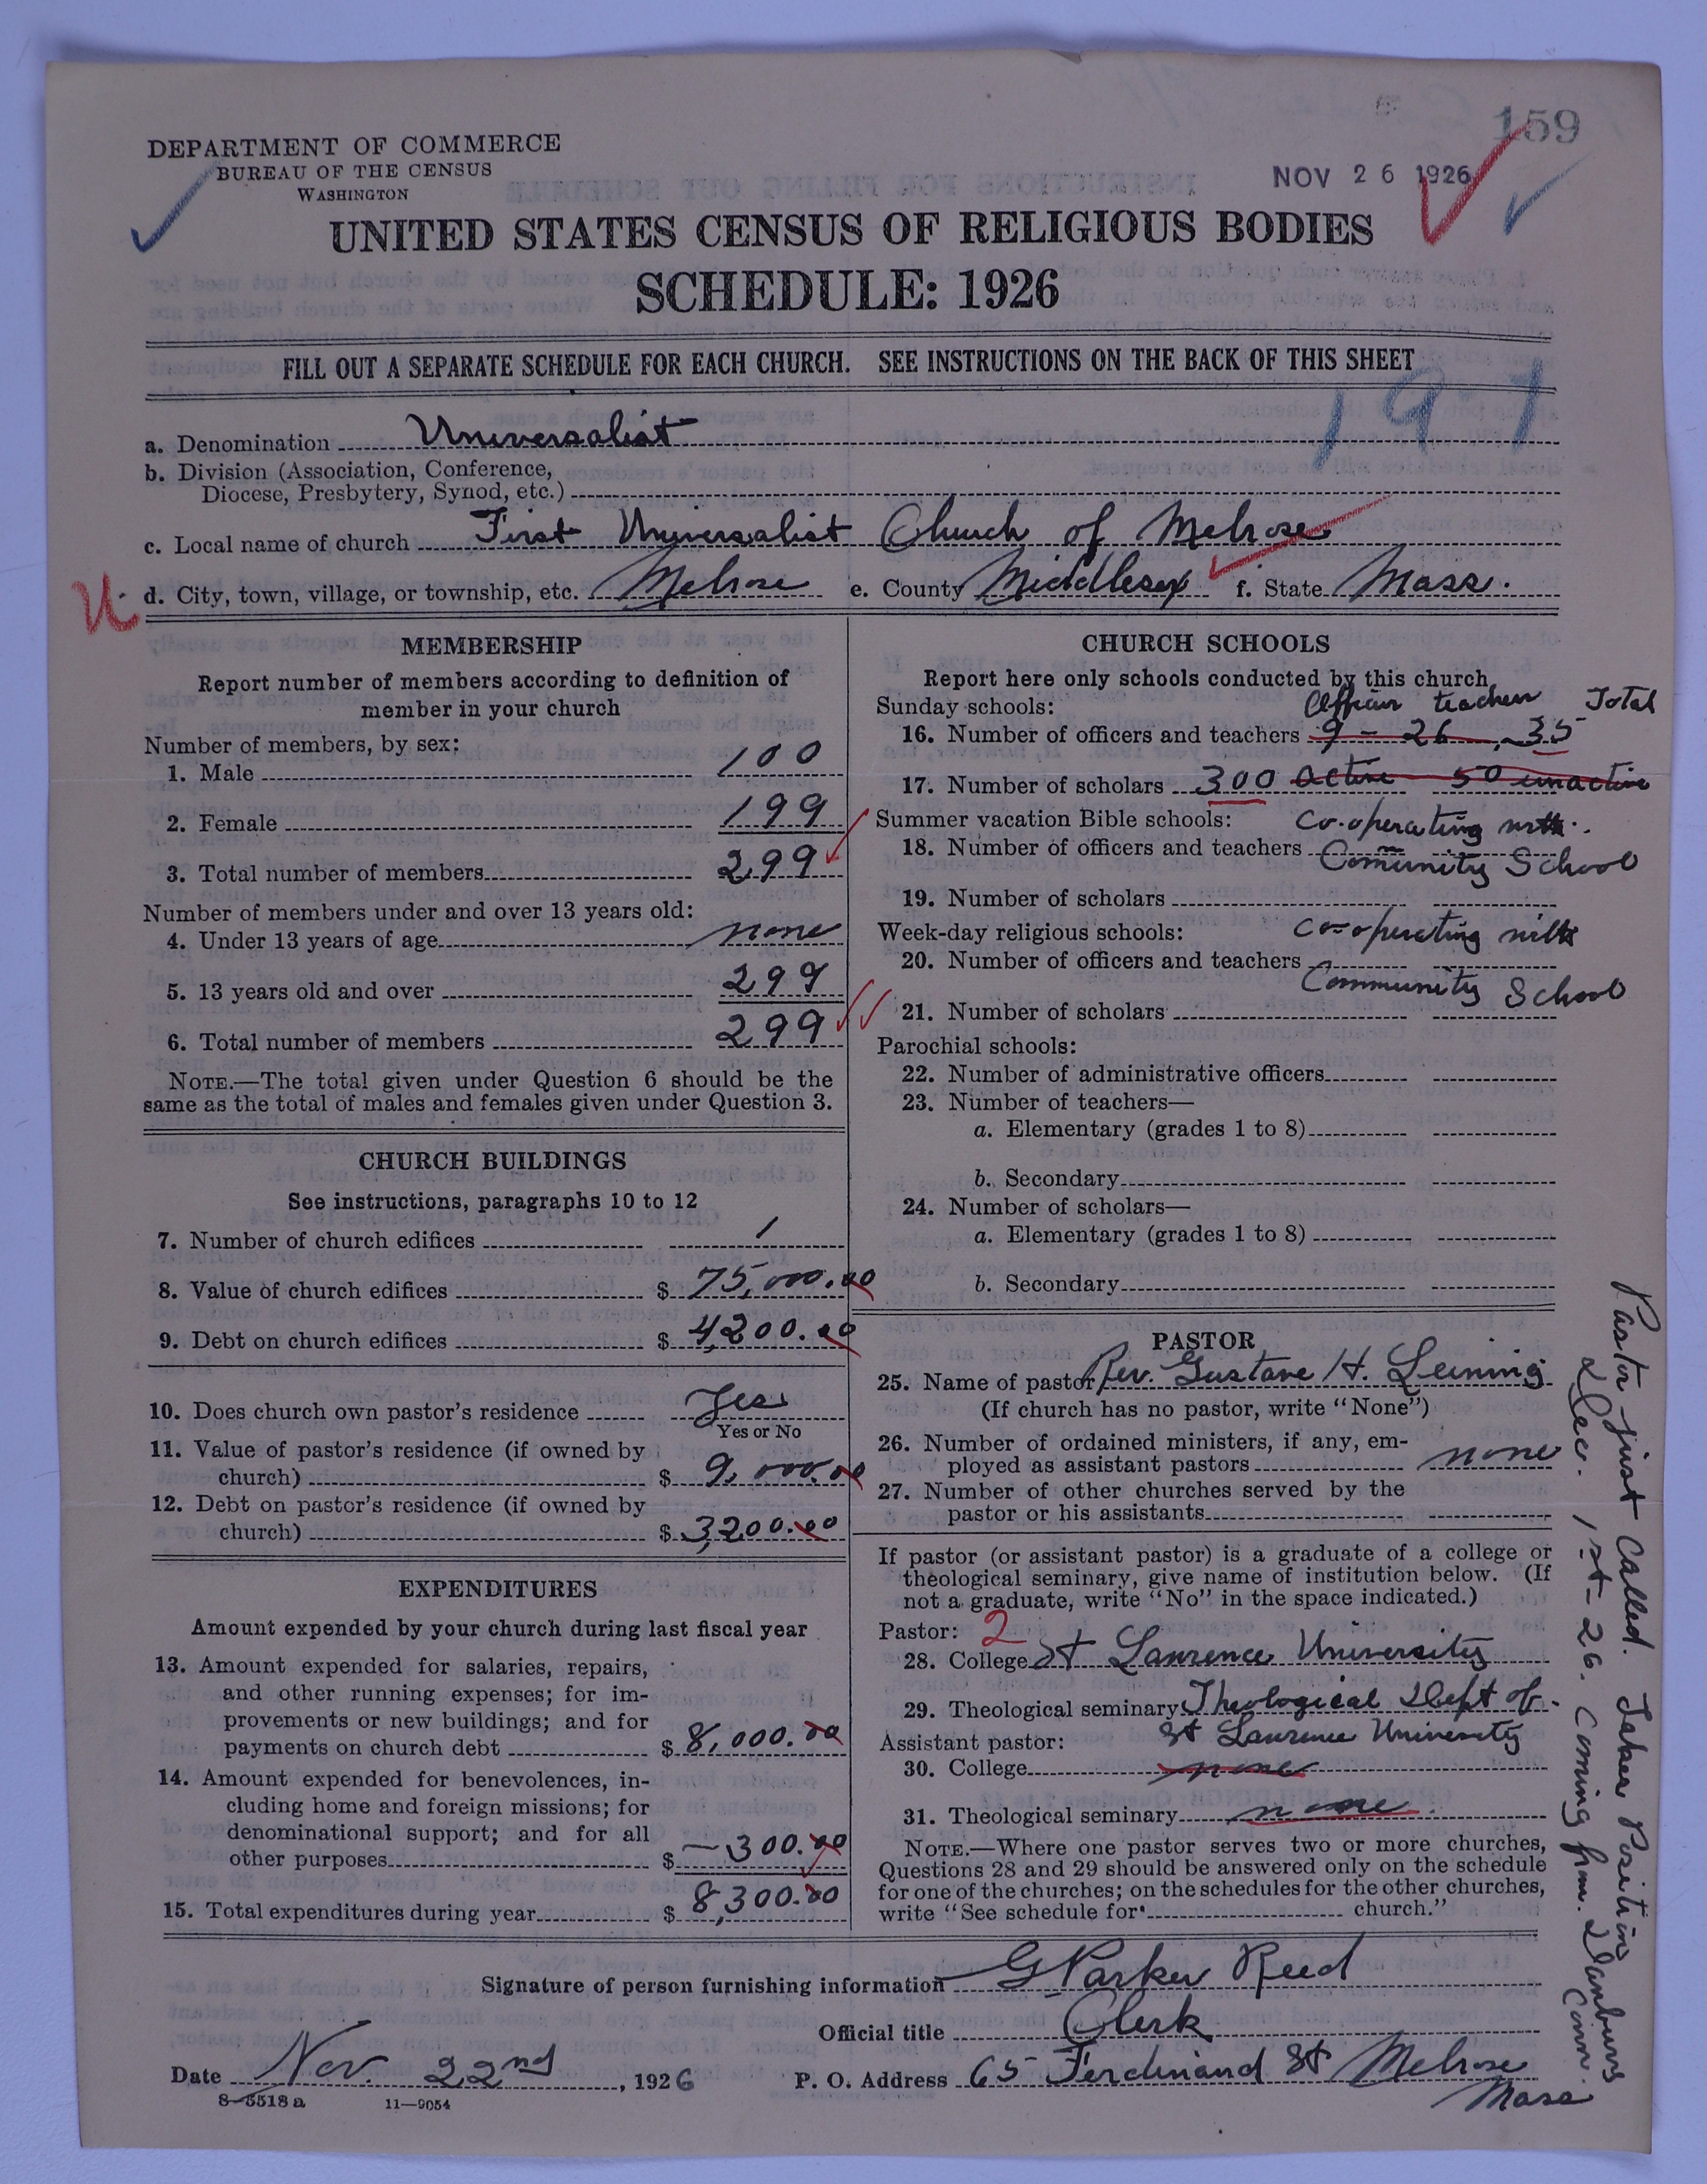 159
DEPARTMENT OF COMMERCE
BUREAU OF THE CENSUS
WASHINGTON
NOV 26 1926
UNITED STATES CENSUS OF RELIGIOUS BODIES
SCHEDULE: 1926
FILL OUT A SEPARATE SCHEDULE FOR EACH CHURCH. SEE INSTRUCTIONS ON THE BACK OF THIS SHEET
a. Denomination Universalist
b. Division (Association, Conference,
Diocese, Presbytery, Synod, etc.)
c. Local name of church First Universalist Church of Melrose
d. City, town, village, or township, etc. Melrose e. County Middlesex f. State Mass.
MEMBERSHIP
Report number of members according to definition of
member in your church
Number of members, by sex:
1. Male 100
2. Female 199
3. Total number of members 299
Number of members under and over 13 years old:
4. Under 13 years of age none
5. 13 years old and over 299
6. Total number of members 299
NOTE.—The total given under Question 6 should be the
same as the total of males and females given under Question 3.
CHURCH BUILDINGS
See instructions, paragraphs 10 to 12
7. Number of church edifices 1
8. Value of church edifices $ 75,000.00
9. Debt on church edifices $ 4,200.00
10. Does church own pastor's residence Yes
Yes or No
11. Value of pastor's residence (if owned by
church) $ 9,000.00
12. Debt on pastor's residence (if owned by
church) $ 3,200.00
EXPENDITURES
Amount expended by your church during last fiscal year
13. Amount expended for salaries, repairs,
and other running expenses; for im-
provements or new buildings; and for
payments on church debt $ 8,000.00
14. Amount expended for benevolences, in-
cluding home and foreign missions; for
denominational support; and for all
other purposes $ 300.00
15. Total expenditures during year $ 8,300.00
CHURCH SCHOOLS
Report here only schools conducted by this church
Sunday schools: Officers teachers Total
16. Number of officers and teachers 9 - 26 35
17. Number of scholars 300 active 50 inactive
Summer vacation Bible schools: Co-operating with
18. Number of officers and teachers Community School
19. Number of scholars
Week-day religious schools: Co-operating with
20. Number of officers and teachers Community School
21. Number of scholars
Parochial schools:
22. Number of administrative officers
23. Number of teachers—
a. Elementary (grades 1 to 8)
b. Secondary
24. Number of scholars—
a. Elementary (grades 1 to 8)
b. Secondary
PASTOR
25. Name of pastor Rev. Gustave H. Leining
(If church has no pastor, write "None")
26. Number of ordained ministers, if any, em-
ployed as assistant pastors none
27. Number of other churches served by the
pastor or his assistants
If pastor (or assistant pastor) is a graduate of a college or
theological seminary, give name of institution below. (If
not a graduate, write "No" in the space indicated.)
Pastor: 2
28. College St Lawrence University
29. Theological seminary Theological Dept of
Assistant pastor: St Lawrence University
30. College none
31. Theological seminary none
NOTE.—Where one pastor serves two or more churches,
Questions 28 and 29 should be answered only on the schedule
for one of the churches; on the schedules for the other churches,
write "See schedule for church."
Pastor just called. Takes Position
Dec. 1st - 26. Coming from Danbury
Conn.
Signature of person furnishing information G Parker Reed
Official title Clerk
Date Nov. 22nd, 1926 P. O. Address 65 Ferdinand St Melrose
Mass
8-5518a 11-9054